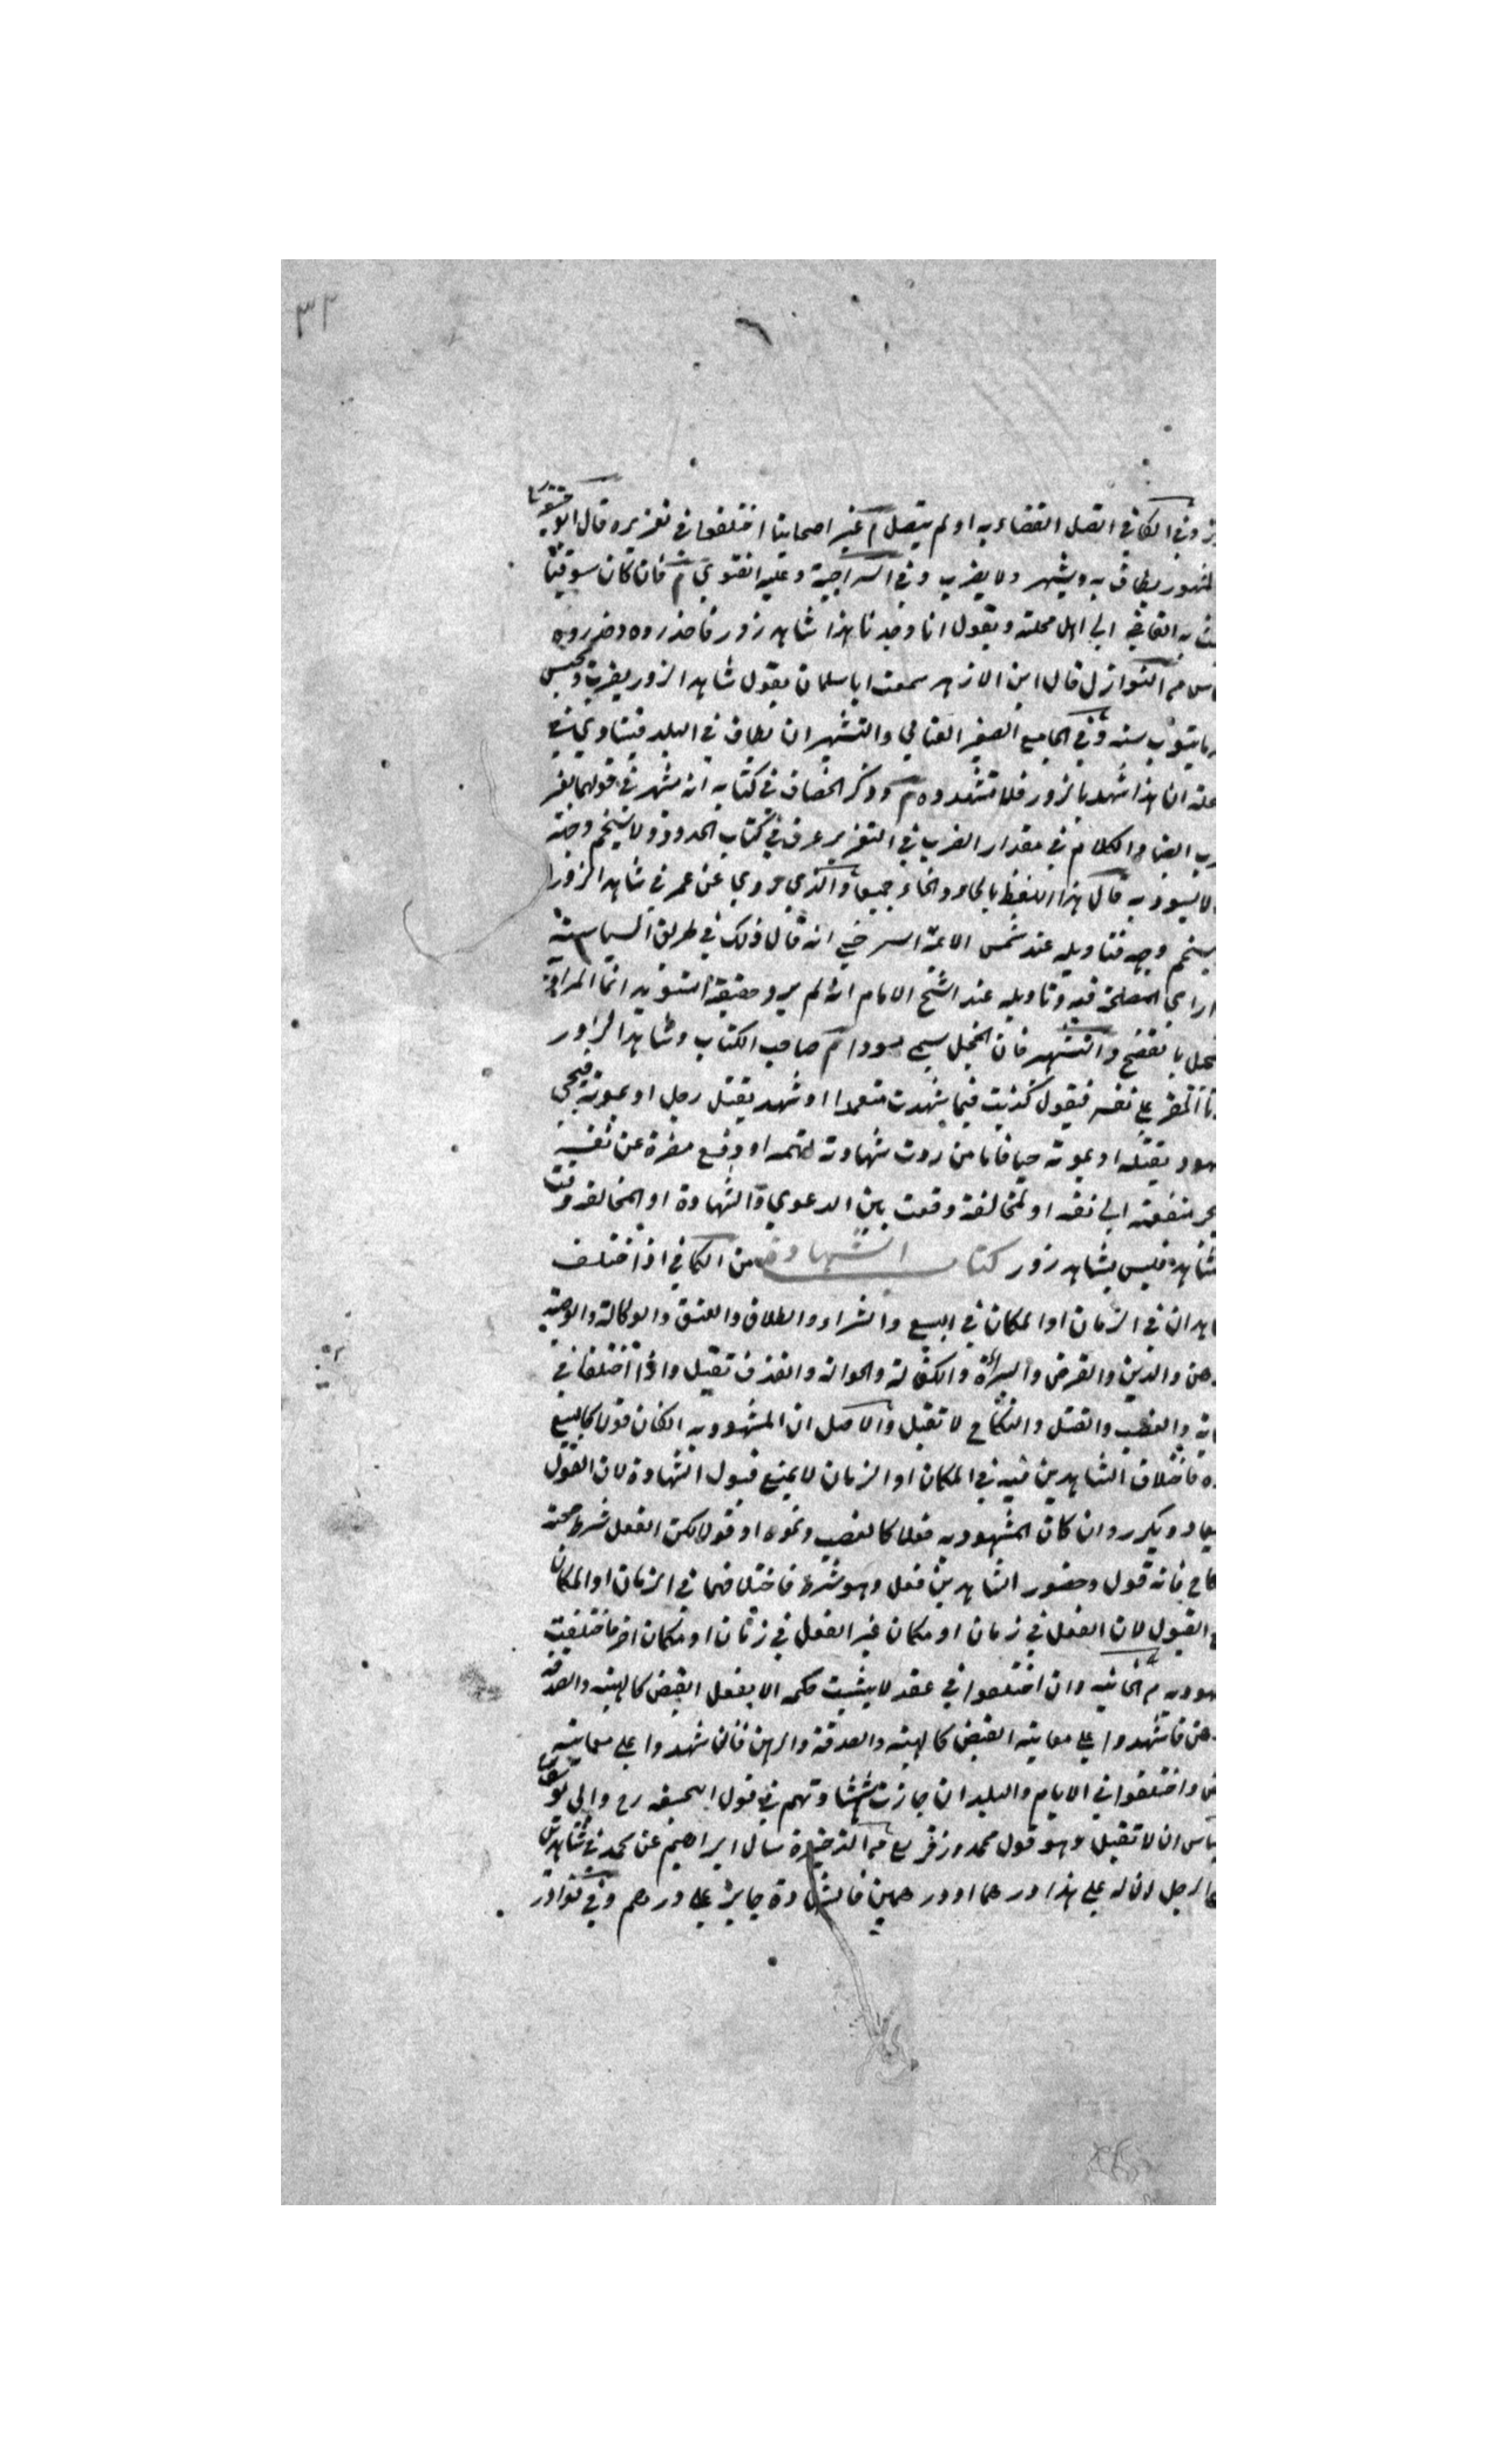 ٣٢
وفي الكافي اتصل القضاء به او لم يتصل م غير اصحابنا اختلفوا في تعزيره قال ابو
المشهور يطاف به ويشهر ولا يضرب وفي السراجية وعليه الفتوى م فان كان سوقيا
به القاضي الى اهل محلته ويقول انا وجدنا هذا شاهد زور فاحذروه وحذروه
م النوازل قال ابن الازهر سمعت ابا سلمان يقول شاهد الزور يضرب ويحبس
ما يتوب سنة وفي الجامع الصغير العتابي والتشهير ان يطاف في البلد فينادى في
ان هذا شهد بالزور فلا تشهدوه م وذكر الخصاف في كتابه انه يشهر في قولهما بغير
ايضا والكلام في مقدار الضرب في التعزير عرف في كتاب الحدود ولا يسخم وجهه
لا يسود به قال هذا اللفظ بالحاء والخاء جميعا والذي مروي عن عمر في شاهد الزور
يسخم وجهه فتاويله عند شمس الائمة السرخسي انه قال ذلك في طريق السياسة
راى المصلحة فيه وتاويله عند الشيخ الامام انه لم يرو حقيقة التسويد انما المراد
بالتفضيح والتشهير فان الخجل يسمى مسودا م صاحب الكتاب وشاهد الزور
المقر على نفسه فيقول كذبت فيما شهدت متعمدا او شهد بقتل رجل او بموته فيجئ
بقتله او بموته حيا فاما من ردت شهادته لتهمة او دفع مضرة عن نفسه
منفعة الى نفسه او لمخالفة وقعت بين الدعوى والشهادة او المخالفة وقعت
فليس بشاهد زور كتاب الشهادة من الكافي اذا اختلف
في الزمان او المكان في البيع والشراء والطلاق والعتق والوكالة والوصية
والدين والقرض والبراءة والكفالة والحوالة والقذف تقبل واذا اختلفا في
والغصب والقتل والنكاح لا تقبل والاصل ان المشهود به اذا كان قولا كالبيع
فاختلاف الشاهدين فيه في المكان او الزمان لا يمنع قبول الشهادة لان القول
يعاد ويكرر وان كان المشهود به فعلا كالغصب ونحوه او قولا لكن الفعل شرط صحته
فانه قول وحضور الشاهدين فعل وهو شرط فاختلافهما في الزمان او المكان
القبول لان الفعل في زمان او مكان غير الفعل في زمان او مكان اخر فاختلفت
م الخانية وان اختلفوا في عقد لا يثبت حكمه الا بفعل القبض كالهبة والصدقة
فاشهدوا على معاينة القبض كالهبة والصدقة والرهن فان شهدوا على معاينة
واختلفوا في الايام والبلدان جازت شهادتهم في قول ابي حنيفة رح وابي يوسف
ان لا تقبل وهو قول محمد وزفر رح م الذخيرة سال ابراهيم عن محمد في شاهدين
لرجل ان له على هذا درهما او درهمين فالشهادة جايزة على درهم وفي نوادر